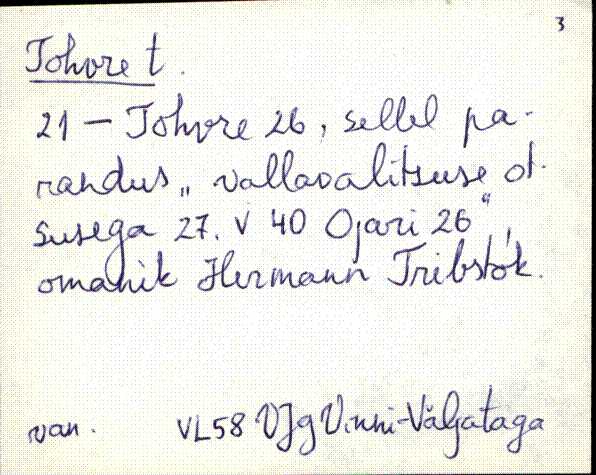 3
Tohvre t.
21 – Tohvre 26, sellel pa-
randus „vallavalitsuse ot-
susega 27. V 40 Ojari 26“,
omanik Hermann Tribstok.
van. VL58 VJg Vinni-Väljataga